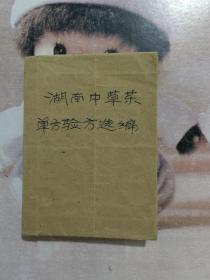 湖南中草药
单方验方选编